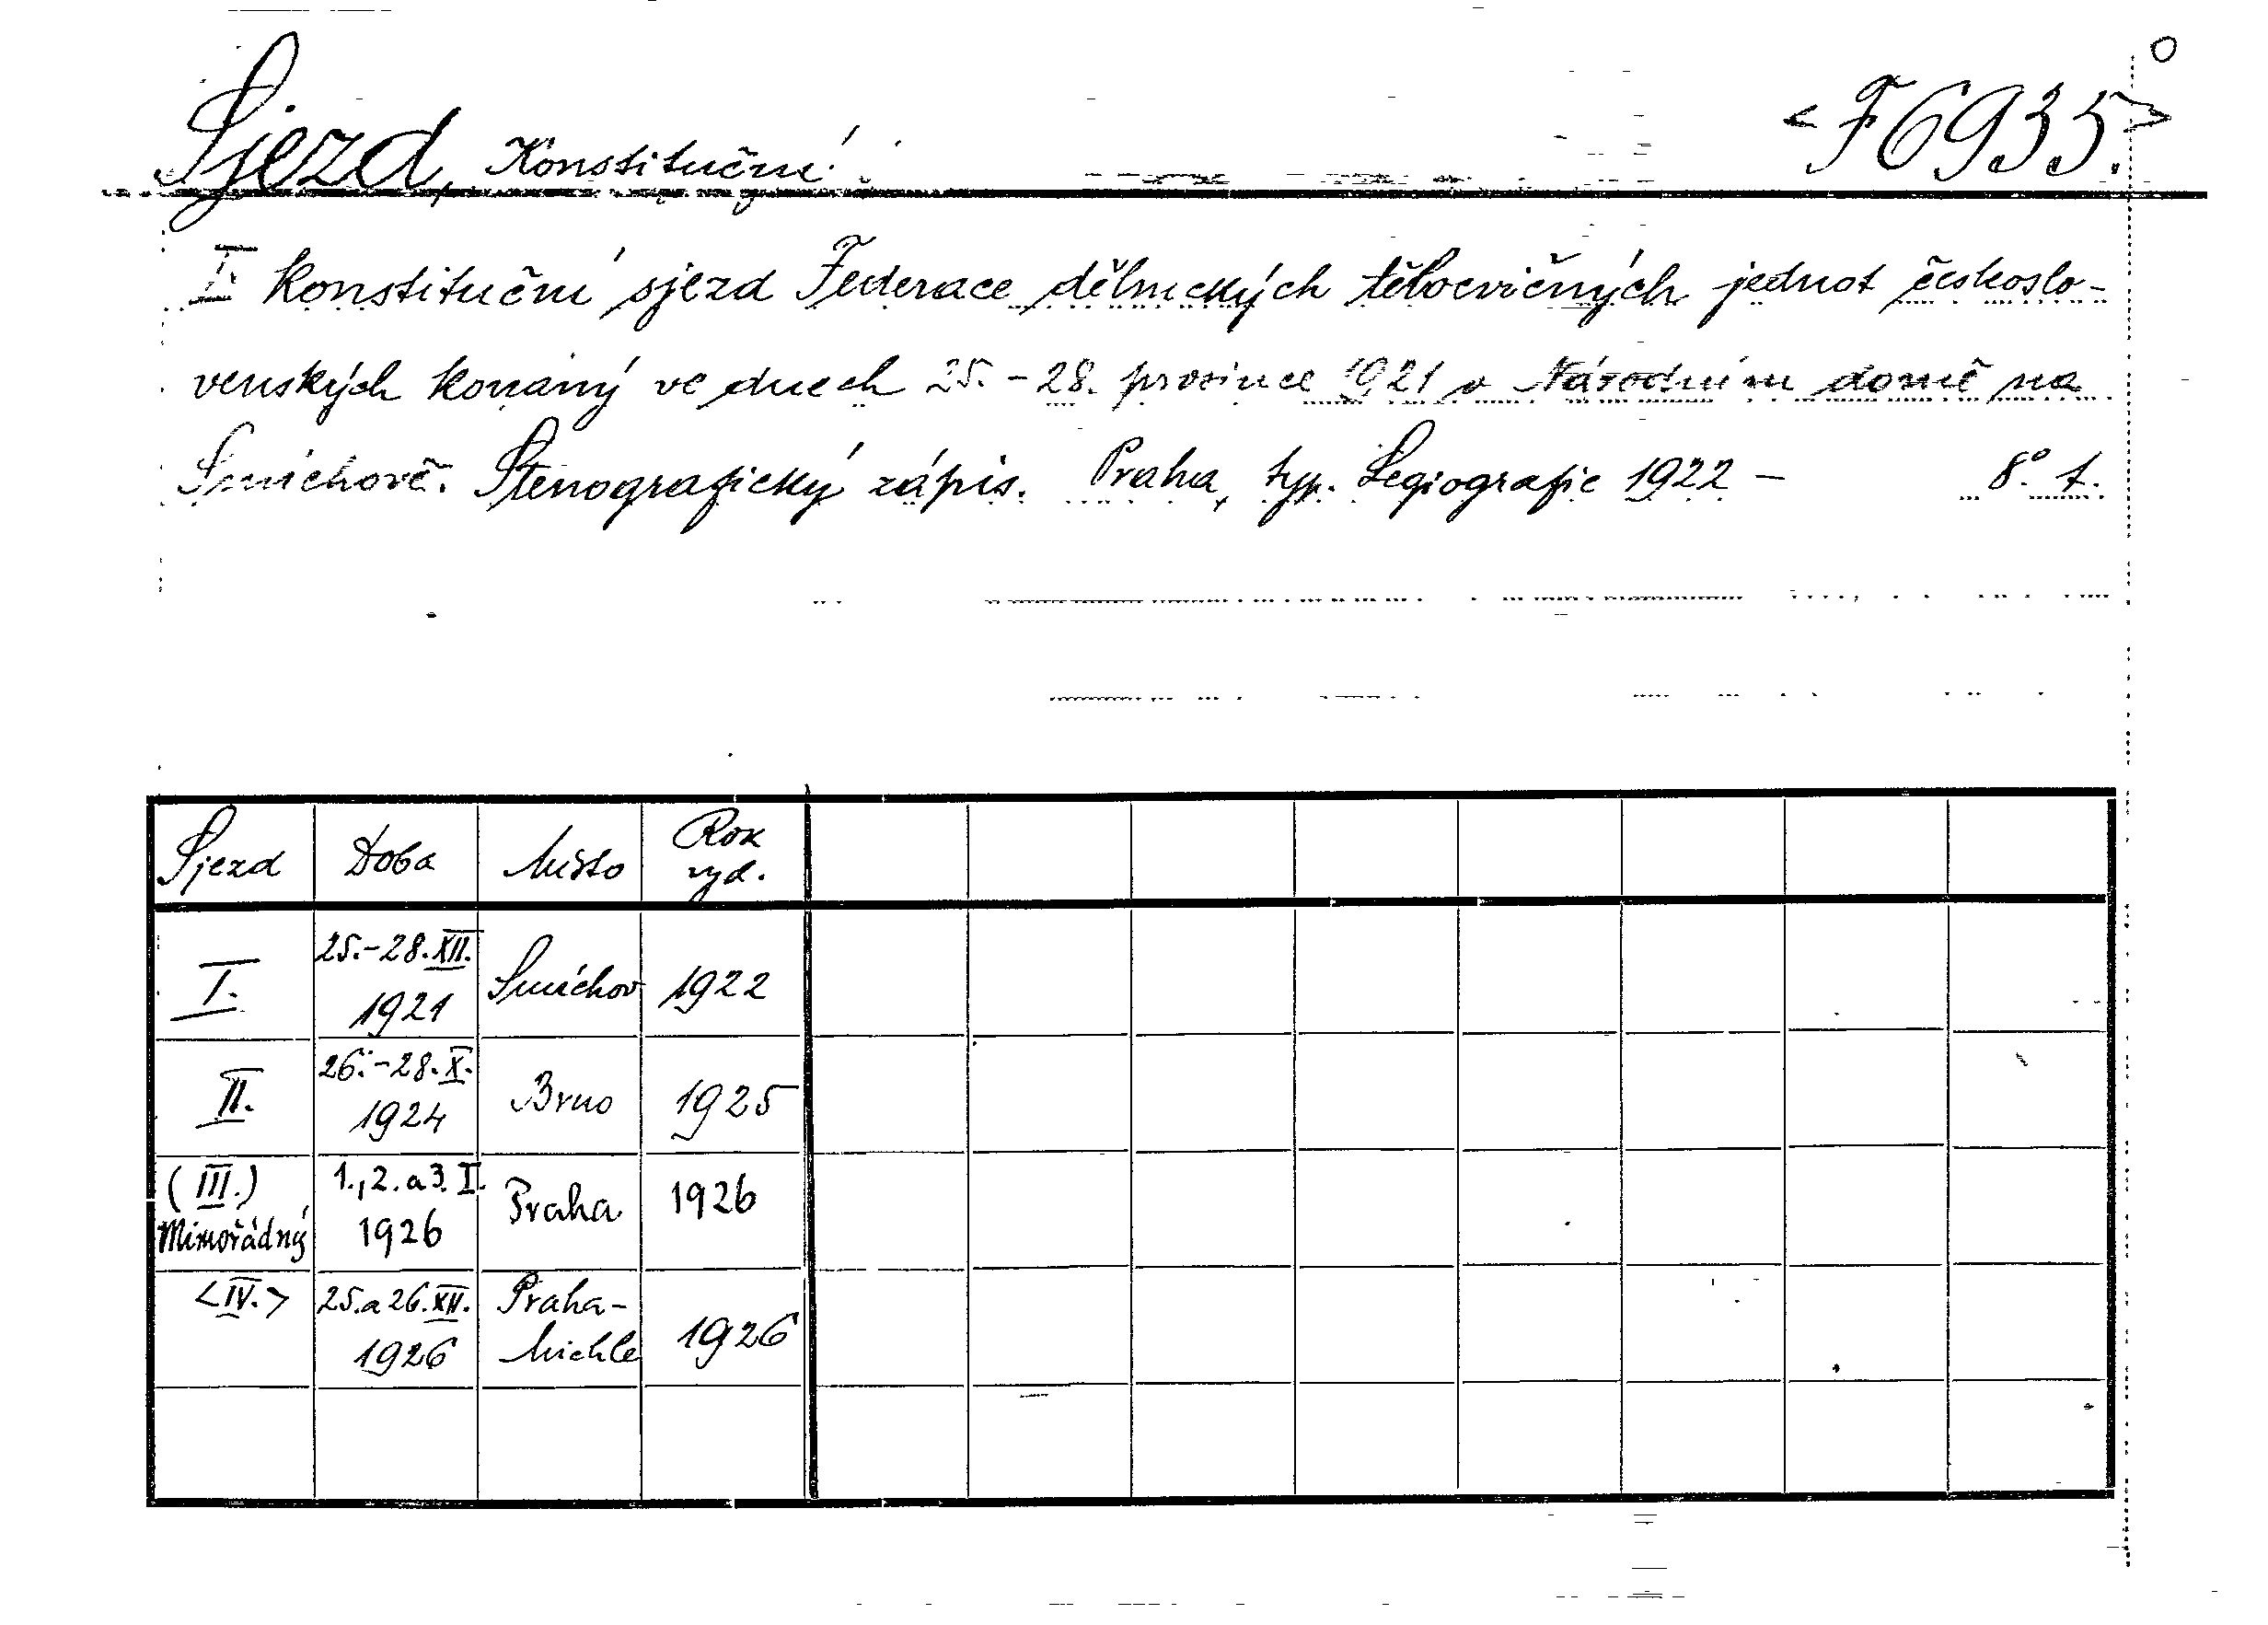 Sjezd, Konstituční. <F6935.>
I. Konstituční sjezd Federace dělnických tělocvičných jednot českoslo-
venských konaný ve dnech 25.-28. prosince 1921 v Národním domě na
Smíchově. Stenografický zápis. Praha, typ. Legiografie 1922 - 8° t.
Sjezd Doba Místo Rok vyd.
I. 25.-28.XII. 1921 Smíchov 1922
II. 26.-28.X. 1924 Brno 1925
(III.) Mimořádný 1., 2. a 3. I. 1926 Praha 1926
<IV.> 25. a 26. XII. 1926 Praha-Michle 1926